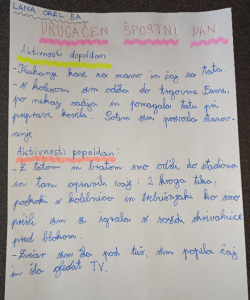 LANA OREL 5A
DRUGAČEN ŠPORTNI DAN
Aktivnosti dopoldan:
- Kuhanje kave za mamo in čaj za tata.
- s kolesom sem odšla do trgovine Eurospin
po nekaj sadja in pomagala tatu pri
pripravi kosila. Potem sem pospravila stanov-
anje
Aktivnosti popoldan:
- Z tatom in bratom smo odšli do stadiona
in tam opravili vaje: 2 kroga teka,
poskoki s kolebnico in trebušnjaki ko smo
prišli sem se igrala s sosedi skrivalnice
pred blokom.
- Zvečer sem šla pod tuš, sem popila čaj
in šla gledat TV.